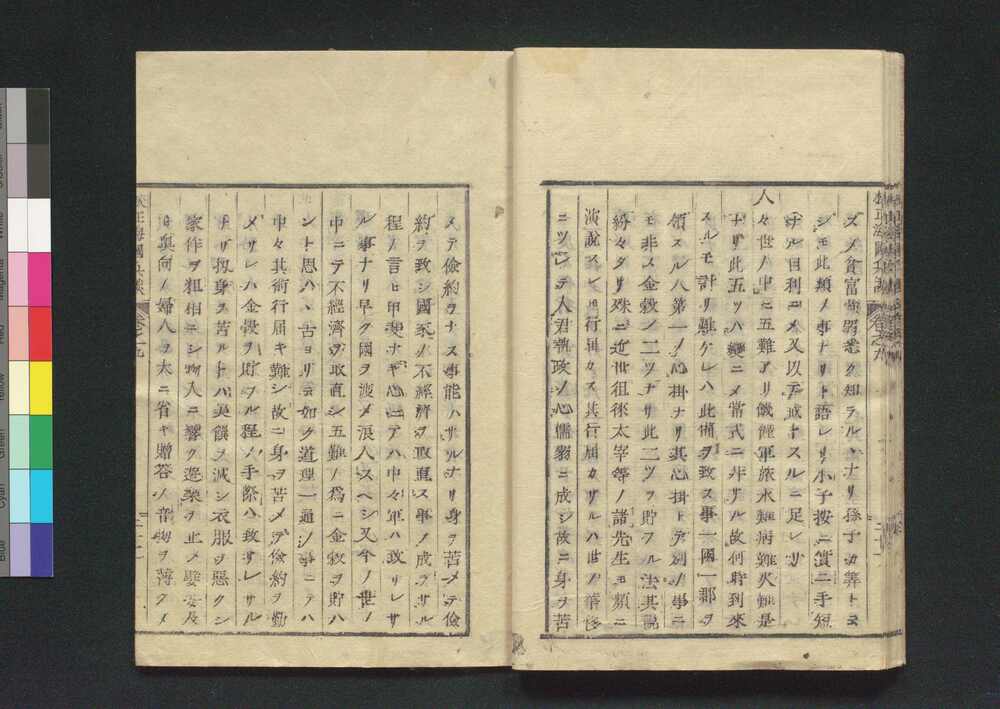 ズメ貧富器悉ク知ラルヽナリ孫子カ葬トヌ
シモ此類ノ事ナリト語レリ小子按ニ實ニ手短
ナル目利ニメ又以テ戒トスルニ足レリ
人々世ノ中ニ五難アリ饑饉軍旅水難病難火難是
ナリ此五ツハ變ニメ當式ニ非サル故何時到來
スルモ計リ難ケレハ此備ヲ致ス事一國一郡ヲ
領スル人第一ノ心掛ナリ其心掛トテ別ノ事ニ
モ非ス金穀ノ二ツナリ此二ツヲ貯フル法其説
紛々タリ殊ニ近世徂徠太宰等ノ諸先生モ頻ニ
演説スレ𪜈行屆カス其行屆カサルハ世ノ華侈
ニツレテ人君執政ノ心懦弱ニ成シ故ニ身ヲ苦
メテ儉約ヲナス事能ハサルナリ身ヲ苦メテ儉
約ヲ致シ國家ノ不經濟ヲ取直ス事ノ成ラサル
程ノ言ヒ甲斐ナキ心ニテハ中々軍ハ致サレサ
ル事ナリ早ク國ヲ渡メ浪人スヘシ又今ノ世ノ
中ニテ不經濟ヲ取直シ五難ノ爲ニ金穀ヲ貯ハ
ント思ハヽ古ヨリ云如ク道理一通ノ事ニテハ
中々其術行屆キ難シ故ニ身ヲ苦メテ儉約ヲ勤
メサレハ金穀ヲ貯フル程ノ手際ハ致サレサル
ナリ扨身ヲ苦ルトハ美饌ヲ減シ衣服ヲ惡クシ
家作ヲ粗相ニシ物人ニ響ク遊樂ヲ止メ嬖妾及
ヒ奥向ノ婦人ヲ大ニ省キ贈答ノ音物ヲ薄クメ